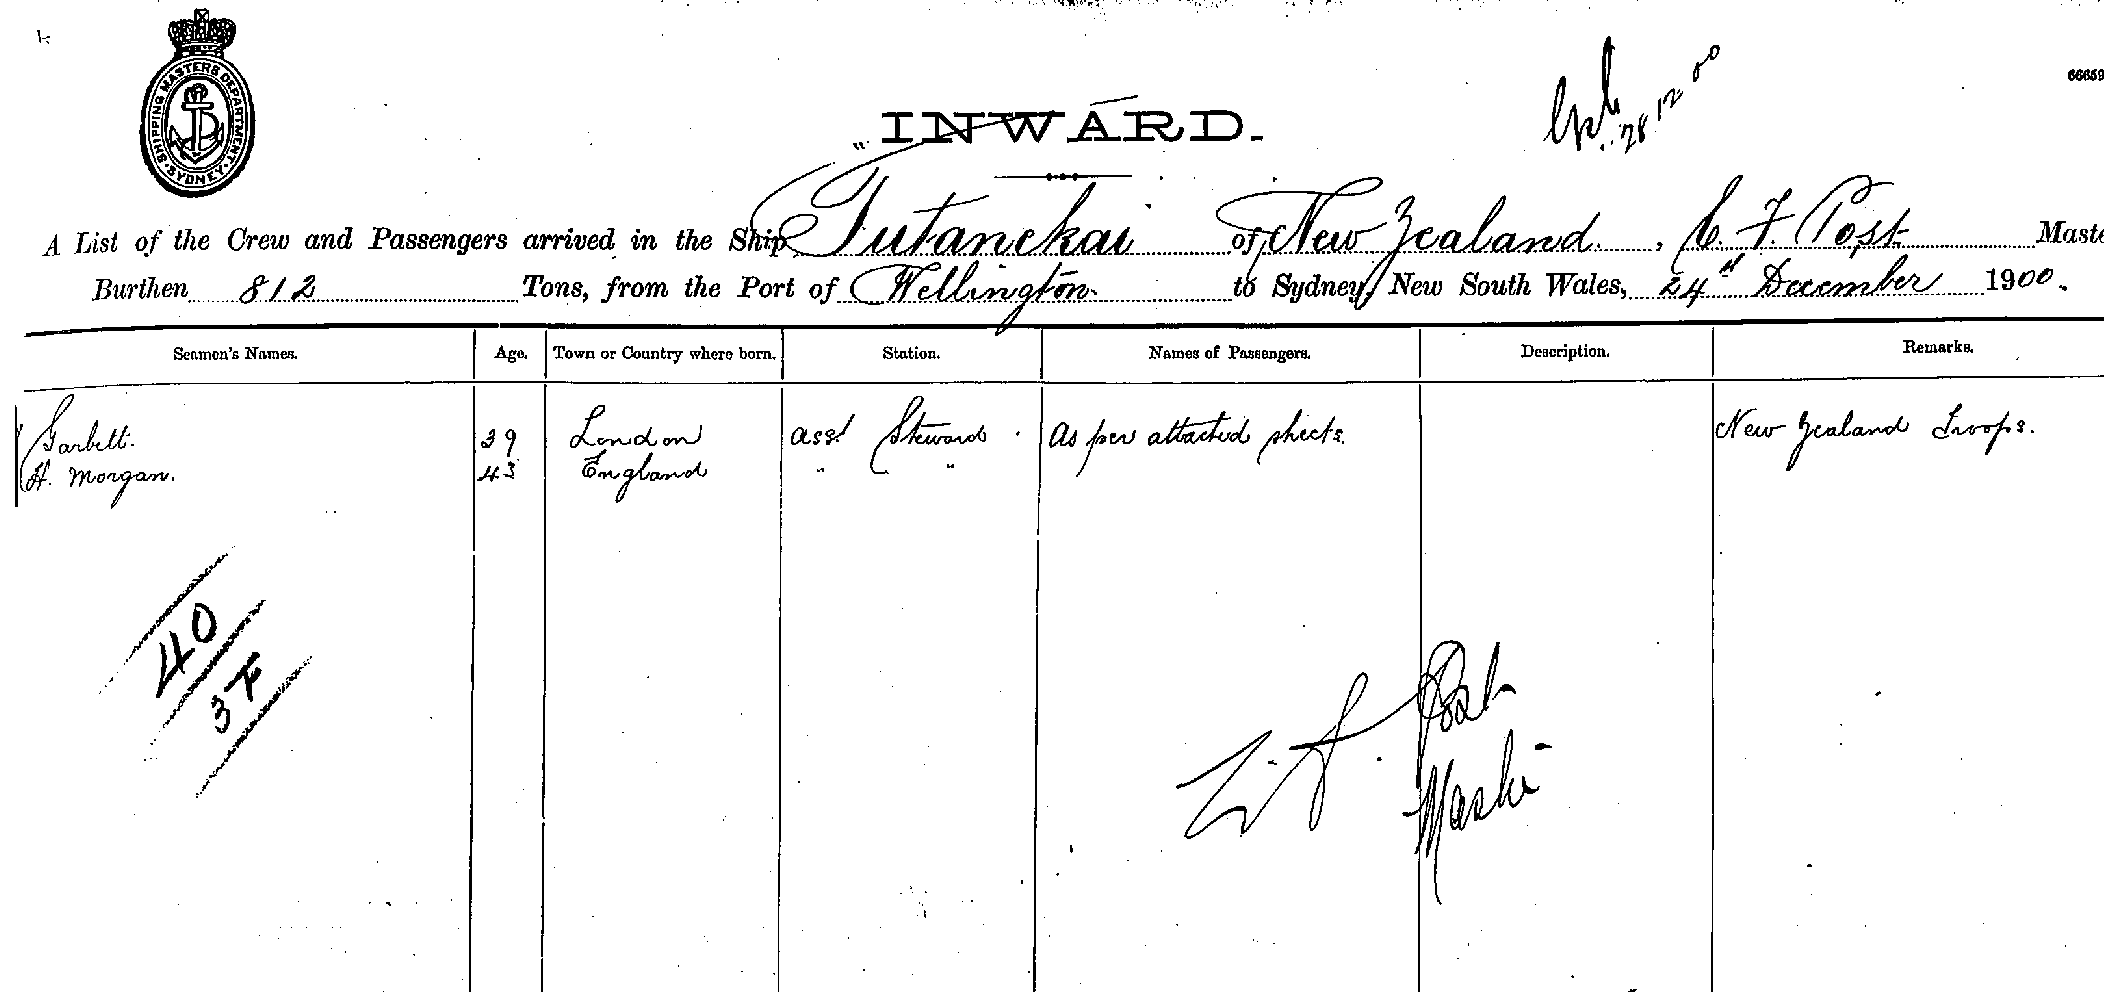 SHIPPING MASTERS DEPARTMENT. SYDNEY.
28 12 00
66659
INWARD.
A List of the Crew and Passengers arrived in the Ship Tutanekai of New Zealand, C. F. Post Maste
Burthen 812 Tons, from the Port of Wellington to Sydney, New South Wales, 24th December 1900.
Seamen's Names. Age. Town or Country where born. Station. Names of Passengers. Description. Remarks.
Garbett. 39 London asst Steward. As per attached sheets. New Zealand Troops.
H. Morgan. 43 England " "
40
37
C. F. Post
Master